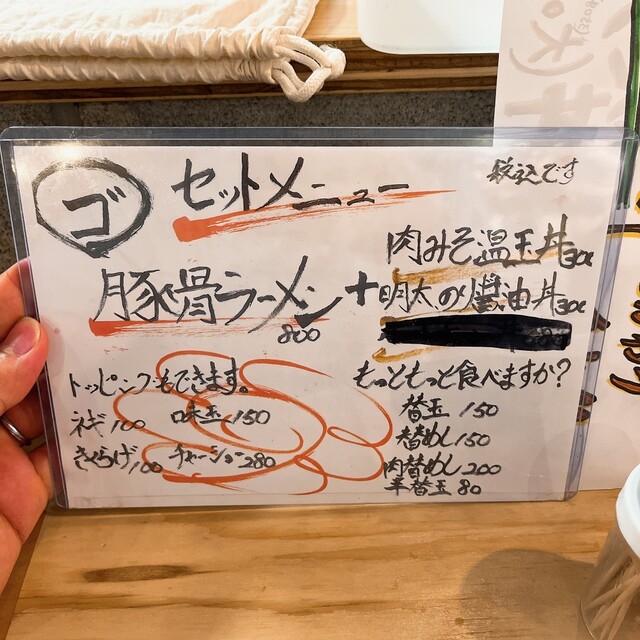 ゴ
セットメニュー
税込です
豚骨ラーメン
800
+
肉みそ温玉丼300
明太の醤油丼300
トッピングもできます。
ネギ100 味玉150
きくらげ100 チャーシュー280
もっともっと食べますか?
替玉 150
替めし150
肉替めし200
半替玉 80